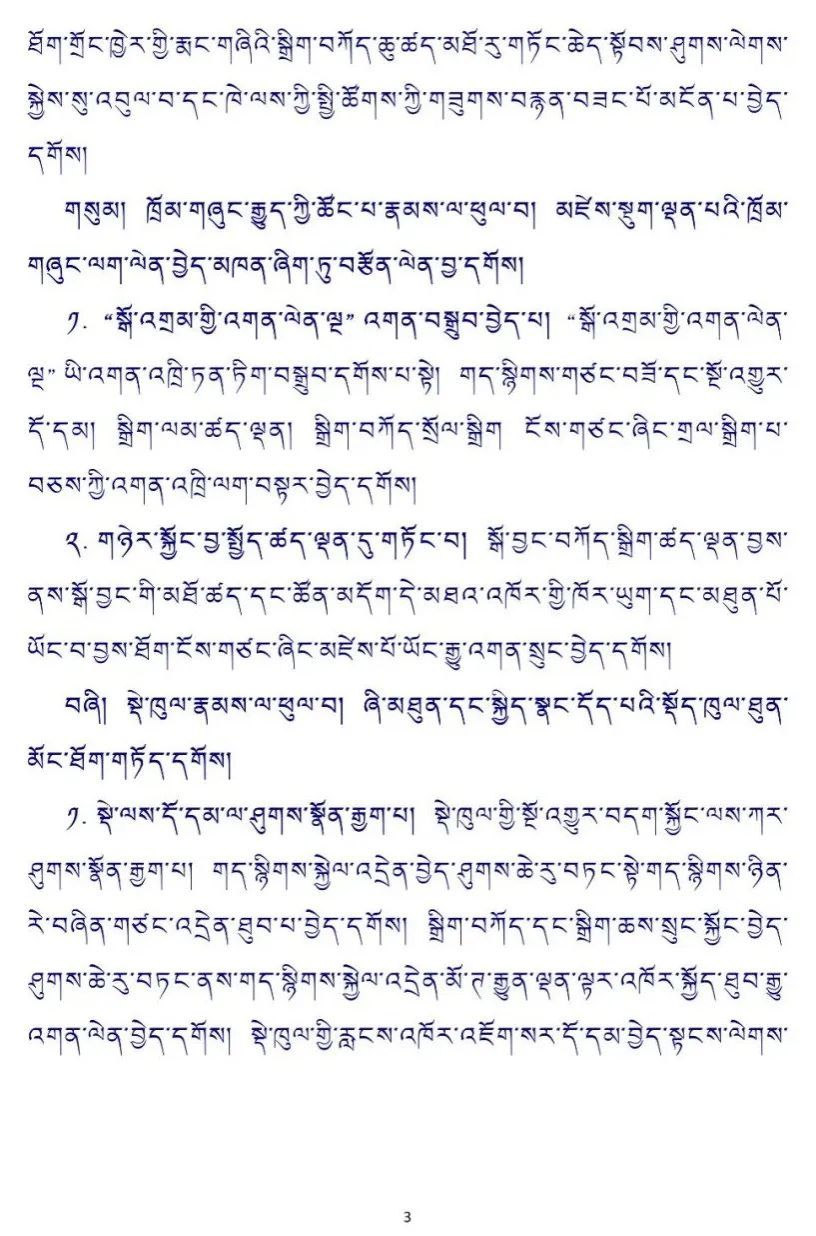 ཐོག་གྲོང་ཁྱེར་གྱི་རྨང་གཞིའི་སྒྲིག་བཀོད་ཆུ་ཚད་མཐོ་རུ་གཏོང་ཆེད་སྟོབས་ཤུགས་ལེགས་
སྐྱེས་སུ་འབུལ་བ་དང་ཁེ་ལས་ཀྱི་སྤྱི་ཚོགས་ཀྱི་གཟུགས་བརྙན་བཟང་པོ་མངོན་པ་བྱེད་
དགོས།
གསུམ། ཁྲོམ་གཞུང་རྒྱུད་ཀྱི་ཚོང་པ་རྣམས་ལ་ཕུལ་བ། མཛེས་སྡུག་ལྡན་པའི་ཁྲོམ་
གཞུང་ལག་ལེན་བྱེད་མཁན་ཞིག་ཏུ་བརྩོན་ལེན་བྱ་དགོས།
༡. “སྒོ་འགྲམ་གྱི་འགན་ལེན་ལྔ” འགན་བསྒྲུབ་བྱེད་པ། “སྒོ་འགྲམ་གྱི་འགན་ལེན་
ལྔ” ཡི་འགན་འཁྲི་ཏན་ཏིག་བསྒྲུབ་དགོས་པ་སྟེ། གད་སྙིགས་གཙང་བཟོ་དང་སྔོ་འགྱུར་
དོ་དམ། སྒྲིག་ལམ་ཚད་ལྡན། སྒྲིག་བཀོད་སྲོལ་སྒྲིག ངོས་གཙང་ཞིང་གྲལ་སྒྲིག་པ་
བཅས་ཀྱི་འགན་འཁྲི་ལག་བསྟར་བྱེད་དགོས།
༢. གཉེར་སྐྱོང་བྱ་སྤྱོད་ཚད་ལྡན་དུ་གཏོང་བ། སྒོ་བྱང་བཀོད་སྒྲིག་ཚད་ལྡན་བྱས་
ནས་སྒོ་བྱང་གི་མཐོ་ཚད་དང་ཚོན་མདོག་དེ་མཐའ་འཁོར་གྱི་ཁོར་ཡུག་དང་མཐུན་པོ་
ཡོང་བ་བྱས་ཐོག་ངོས་གཙང་ཞིང་མཛེས་པོ་ཡོང་རྒྱུ་འགན་སྲུང་བྱེད་དགོས།
བཞི། སྡེ་ཁུལ་རྣམས་ལ་ཕུལ་བ། ཞི་མཐུན་དང་སྐྱིད་སྣང་དོད་པའི་སྡོད་ཁུལ་ཐུན་
མོང་ཐོག་གཏོད་དགོས།
༡. སྡེ་ལས་དོ་དམ་ལ་ཤུགས་སྣོན་རྒྱག་པ། སྡེ་ཁུལ་གྱི་སྔོ་འགྱུར་བདག་སྐྱོང་ལས་ཀར་
ཤུགས་སྣོན་རྒྱག་པ། གད་སྙིགས་སྐྱེལ་འདྲེན་བྱེད་ཤུགས་ཆེ་རུ་བཏང་སྟེ་གད་སྙིགས་ཉིན་
རེ་བཞིན་གཙང་འདྲེན་ཐུབ་པ་བྱེད་དགོས། སྒྲིག་བཀོད་དང་སྒྲིག་ཆས་སྲུང་སྐྱོང་བྱེད་
ཤུགས་ཆེ་རུ་བཏང་ནས་གད་སྙིགས་སྐྱེལ་འདྲེན་མོ་ཊ་རྒྱུན་ལྡན་ལྟར་འཁོར་སྐྱོད་ཐུབ་རྒྱུ་
འགན་ལེན་བྱེད་དགོས། སྡེ་ཁུལ་གྱི་རླངས་འཁོར་འཇོག་སར་དོ་དམ་བྱེད་སྟངས་ལེགས་
3